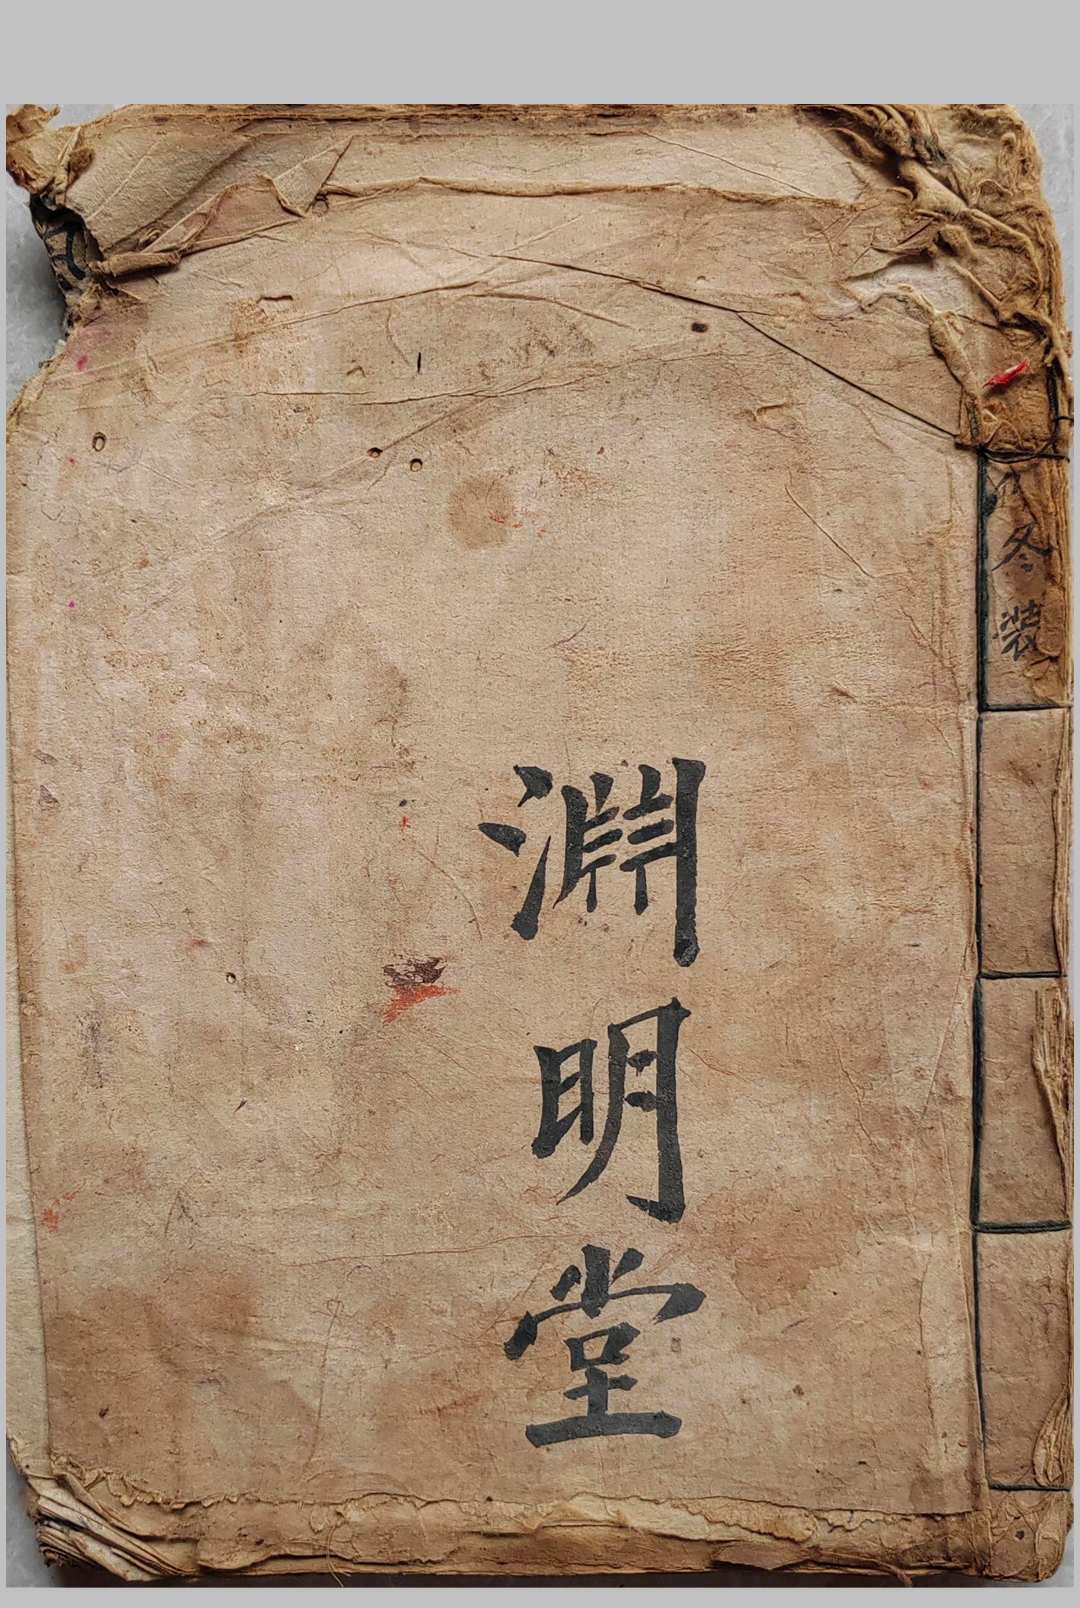 冬裝
淵明堂